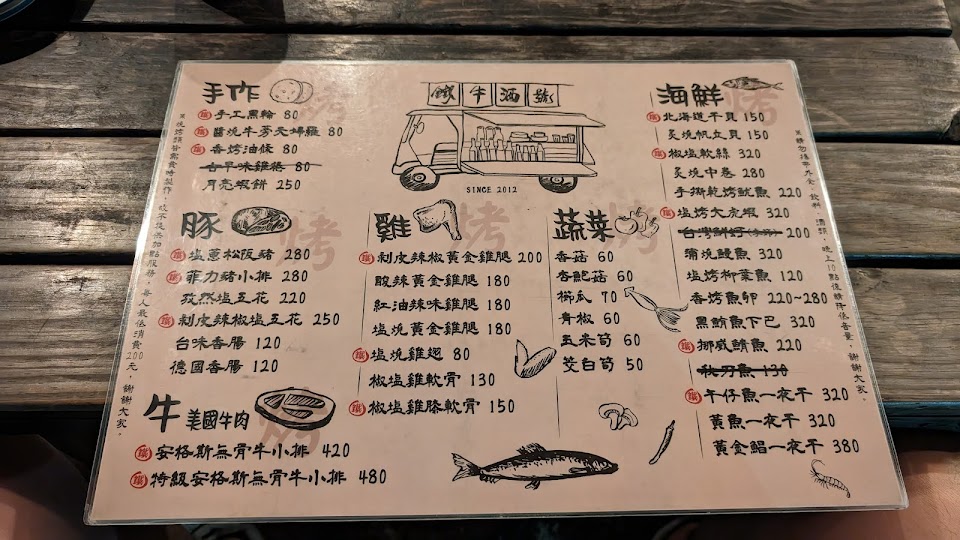 手作
鐵 手工黑輪 80
鐵 醬燒牛蒡天婦羅 80
鐵 香烤油條 80
古早味雞捲 80
月亮蝦餅 250
豚
鐵 塩蔥松阪豬 280
鐵 菲力豬小排 280
孜然塩五花 220
鐵 剝皮辣椒塩五花 250
台味香腸 120
德國香腸 120
牛 美國牛肉
鐵 安格斯無骨牛小排 420
鐵 特級安格斯無骨牛小排 480
鐵牛酒號
SINCE 2012
雞
鐵 剝皮辣椒黃金雞腿 200
酸辣黃金雞腿 180
紅油辣味雞腿 180
塩燒黃金雞腿 180
鐵 塩燒雞翅 80
椒塩雞軟骨 130
鐵 椒塩雞膝軟骨 150
蔬菜
香菇 60
杏鮑菇 60
櫛瓜 70
青椒 60
玉米筍 60
茭白筍 50
海鮮
鐵 北海道干貝 150
炙燒帆立貝 150
鐵 椒塩軟絲 320
炙燒中卷 280
手撕乾烤魷魚 220
鐵 塩烤大虎蝦 320
台灣鮮蚵 200
蒲燒鰻魚 320
塩烤柳葉魚 120
香烤魚卵 220~280
黑鮪魚下巴 320
鐵 挪威鯖魚 220
秋刀魚 130
鐵 午仔魚一夜干 320
黃魚一夜干 320
黃金鯧一夜干 380
烤
烤
烤
烤